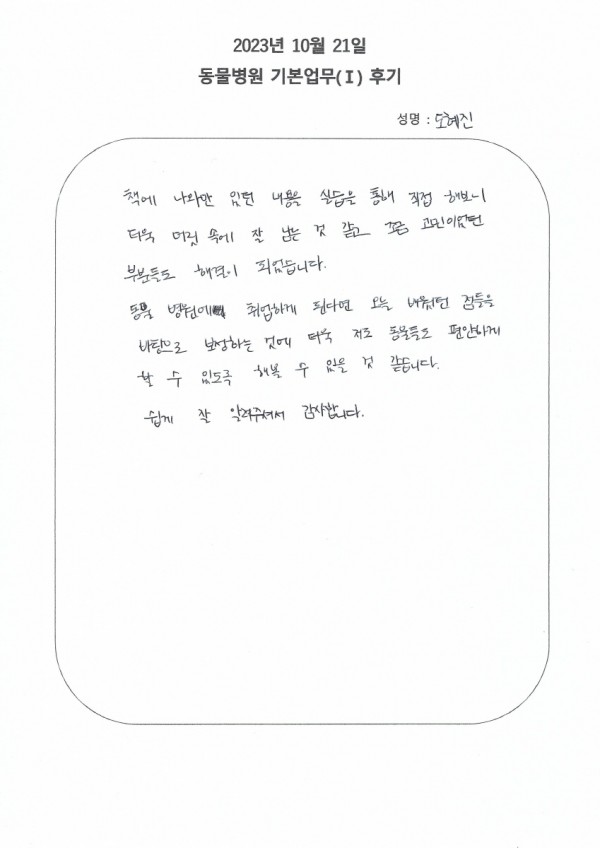 2023년 10월 21일
동물병원 기본업무(Ⅰ) 후기
성명 : 도혜진
책에 나와만 있던 내용을 실습을 통해 직접 해보니
더욱 머릿 속에 잘 남는 것 같고 조금 고민이었던
부분들도 해결이 되었습니다.
동물 병원에 취업하게 된다면 오늘 배웠던 점들을
바탕으로 보정하는 것에 더욱 저도 동물들도 편안하게
할 수 있도록 해볼 수 있을 것 같습니다.
쉽게 잘 알려주셔서 감사합니다.